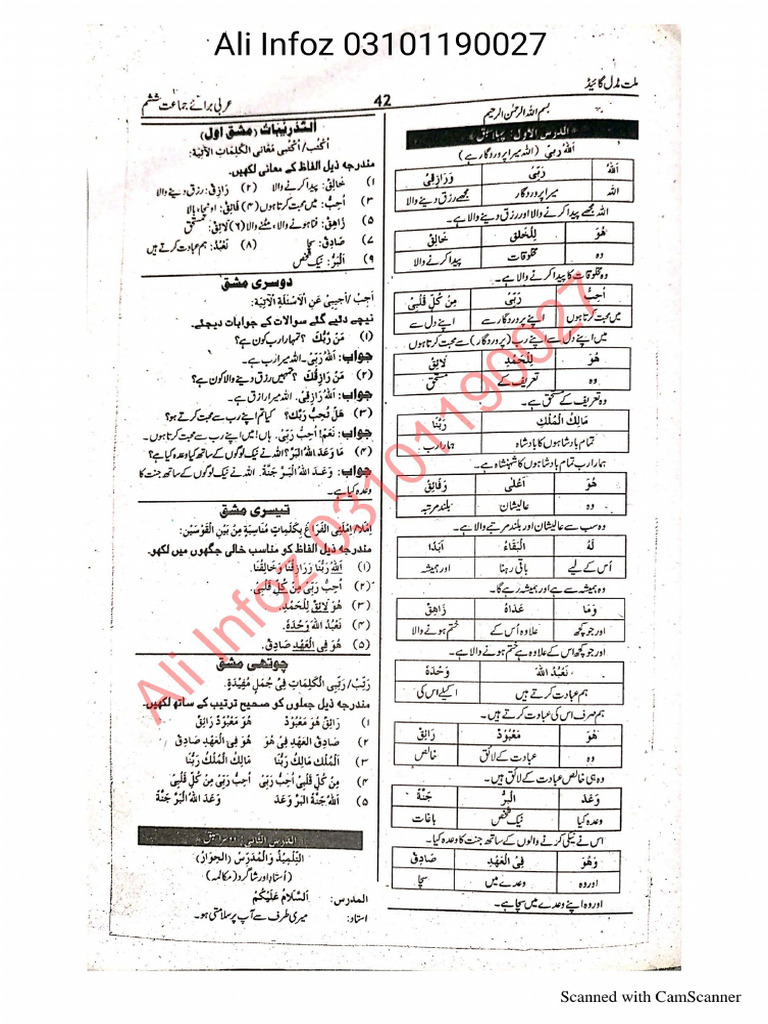 Ali Infoz 03101190027
ملت مڈل گائیڈ
42
عربی برائے جماعت ششم
بسم اللہ الرحمن الرحیم
الدرس الاول: پہلا سبق
اَللهُ رَبِّیْ (اللہ میرا پروردگار ہے)
اَللهُ رَبِّیْ وَرَازِقِیْ
اللہ میرا پروردگار مجھے رزق دینے والا
اللہ مجھے پیدا کرنے والا اور رزق دینے والا ہے۔
هُوَ لِلْخَلْقِ خَالِقٌ
وہ مخلوقات پیدا کرنے والا
وہ مخلوقات کا پیدا کرنے والا ہے۔
اُحِبُّ رَبِّیْ مِنْ کُلِّ قَلْبِیْ
میں محبت کرتا ہوں اپنے پروردگار سے اپنے دل سے
میں اپنے دل سے اپنے رب (پروردگار) سے محبت کرتا ہوں
هُوَ لِلْحَمْدِ لَائِقٌ
وہ تعریف کے مستحق
وہ تعریف کے مستحق ہے۔
مَالِكُ الْمُلْكِ رَبُّنَا
تمام بادشاہوں کا بادشاہ ہمارا رب
ہمارا رب تمام بادشاہوں کا شہنشاہ ہے۔
هُوَ اَعْلٰی وَفَائِقٌ
وہ عالیشان بلند مرتبہ
وہ سب سے عالیشان اور بلند مرتبے والا ہے۔
لَهُ الْبَقَاءُ اَبَدًا
اُس کے لیے باقی رہنا اور ہمیشہ
وہ ہمیشہ سے ہے اور ہمیشہ رہے گا۔
وَمَا عَدَاهُ زَاهِقٌ
اور جو کچھ علاوہ اُس کے ختم ہونے والا
اور جو کچھ اس کے علاوہ ہے ختم ہونے والا ہے۔
نَعْبُدُ اللهَ وَحْدَهُ
ہم عبادت کرتے ہیں اکیلے اس کی
ہم صرف اس کی عبادت کرتے ہیں۔
هُوَ مَعْبُوْدٌ رَائِقٌ
وہ عبادت کے لائق خالص
وہ ہی خالص عبادت کے لائق ہے۔
وَعَدَ الْبَرَّ جَنَّةً
وعدہ کیا نیک شخص باغات
اس نے نیکی کرنے والوں کے ساتھ جنت کا وعدہ کیا ہے۔
وَهُوَ فِی الْعَهْدِ صَادِقٌ
اور وہ وعدے میں سچا
اور وہ اپنے وعدے میں سچا ہے۔
اَلتَّدْرِیْبَاتُ (مشق اول)
اُکْتُبْ/اُکْتُبِیْ مَعَانِیَ الْکَلِمَاتِ الْآتِیَةِ:
مندرجہ ذیل الفاظ کے معانی لکھیں۔
(۱) خَالِقٌ: پیدا کرنے والا (۲) رَازِقٌ: رزق دینے والا
(۳) اُحِبُّ: میں محبت کرتا ہوں (۴) فَائِقٌ: اونچا، بالا
(۵) زَاهِقٌ: فنا ہونے والا، مٹنے والا (۶) لَائِقٌ: مستحق
(۷) صَادِقٌ: سچا (۸) نَعْبُدُ: ہم عبادت کرتے ہیں
(۹) اَلْبَرُّ: نیک شخص
دوسری مشق
اَجِبْ/اَجِیْبِیْ عَنِ الْاَسْئِلَةِ الْآتِیَةِ:
نیچے دئیے گئے سوالات کے جوابات دیجئے۔
(۱) مَنْ رَبُّكَ؟ تمہارا رب کون ہے؟
جواب: اَللهُ رَبِّیْ۔ اللہ میرا رب ہے۔
(۲) مَنْ رَازِقُكَ؟ تمہیں رزق دینے والا کون ہے؟
جواب: اَللهُ رَازِقِیْ۔ اللہ میرا رازق ہے۔
(۳) هَلْ تُحِبُّ رَبَّكَ؟ کیا تم اپنے رب سے محبت کرتے ہو؟
جواب: نَعَمْ! اُحِبُّ رَبِّیْ۔ ہاں! میں اپنے رب سے محبت کرتا ہوں۔
(۴) مَا وَعَدَ اللهُ الْبَرَّ؟ اللہ نے نیک لوگوں کے ساتھ کیا وعدہ کیا ہے؟
جواب: وَعَدَ اللهُ الْبَرَّ جَنَّةً۔ اللہ نے نیک لوگوں کے ساتھ جنت کا
وعدہ کیا ہے۔
تیسری مشق
اِمْلَاْ/اِمْلَئِی الْفَرَاغَ بِکَلِمَاتٍ مُنَاسِبَةٍ مِنْ بَیْنِ الْقَوْسَیْنِ:
مندرجہ ذیل الفاظ کو مناسب خالی جگہوں میں لکھو۔
(۱) اَللهُ رَبُّنَا وَرَازِقُنَا وَخَالِقُنَا
(۲) اُحِبُّ رَبِّیْ مِنْ کُلِّ قَلْبِیْ۔
(۳) هُوَ لَائِقٌ لِلْحَمْدِ۔
(۴) نَعْبُدُ اللهَ وَحْدَهُ۔
(۵) هُوَ فِی الْعَهْدِ صَادِقٌ۔
چوتھی مشق
رَتِّبْ/رَتِّبِی الْکَلِمَاتِ فِیْ جُمَلٍ مُفِیْدَةٍ۔
مندرجہ ذیل جملوں کو صحیح ترتیب کے ساتھ لکھیں۔
(۱) رَائِقٌ هُوَ مَعْبُوْدٌ هُوَ مَعْبُوْدٌ رَائِقٌ
(۲) صَادِقٌ الْعَهْدِ فِیْ هُوَ هُوَ فِی الْعَهْدِ صَادِقٌ
(۳) اَلْمُلْكِ مَالِكُ رَبُّنَا مَالِكُ الْمُلْكِ رَبُّنَا
(۴) مِنْ کُلِّ قَلْبِیْ اُحِبُّ رَبِّیْ اُحِبُّ رَبِّیْ مِنْ کُلِّ قَلْبِیْ
(۵) اَللهُ جَنَّةً الْبَرَّ وَعَدَ وَعَدَ اللهُ الْبَرَّ جَنَّةً
الدرس الثانی: دوسرا سبق
اَلتِّلْمِیْذُ وَالْمُدَرِّسُ (الحِوَارُ)
(اُستاد اور شاگرد (مکالمہ)
المدرس: اَلسَّلَامُ عَلَیْکُمْ
استاد: میری طرف سے آپ پر سلامتی ہو۔
Ali Infoz 03101190027
Scanned with CamScanner